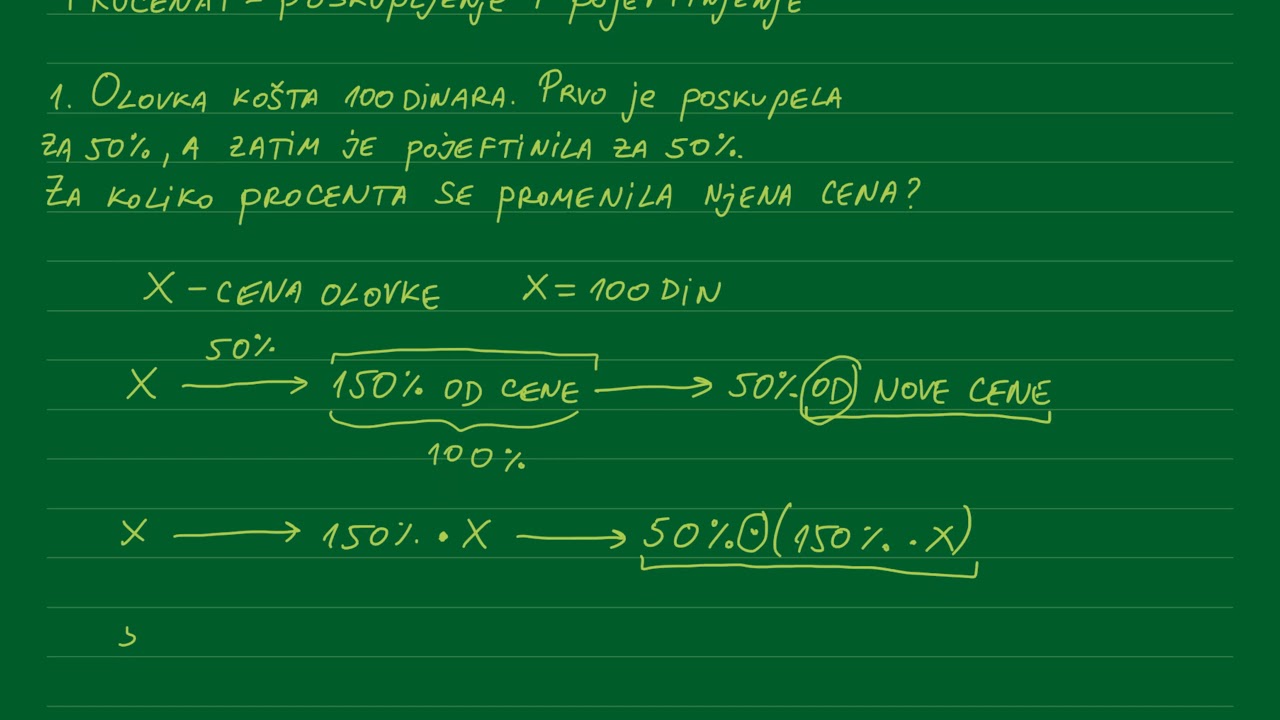 PROCENAT - poskupljenje i pojeftinjenje
1. OLOVKA KOŠTA 100 DiNARA. PRVO je POSKUPELA
ZA 50%, A ZATIM JE POJEFTINILA ZA 50%.
ZA KOLIKO PROCENTA SE PROMENILA NJENA CENA?
X - CENA OLOVKE X = 100 DIN
50%
X → 150% OD CENE → 50% OD NOVE CENE
100%
X → 150% · X → 50% · (150% · X)